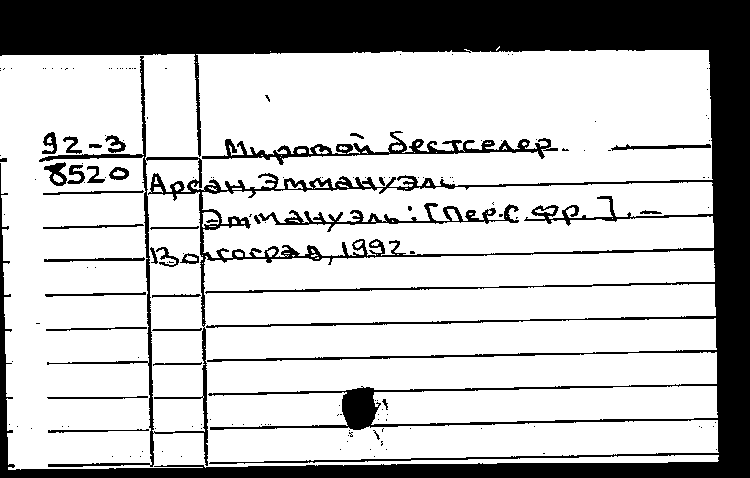 92-3 Мировой бестселер.
8520 Арсан, Эммануэль.
Эммануэль: [Пер. с фр.]. —
Волгоград, 1992.